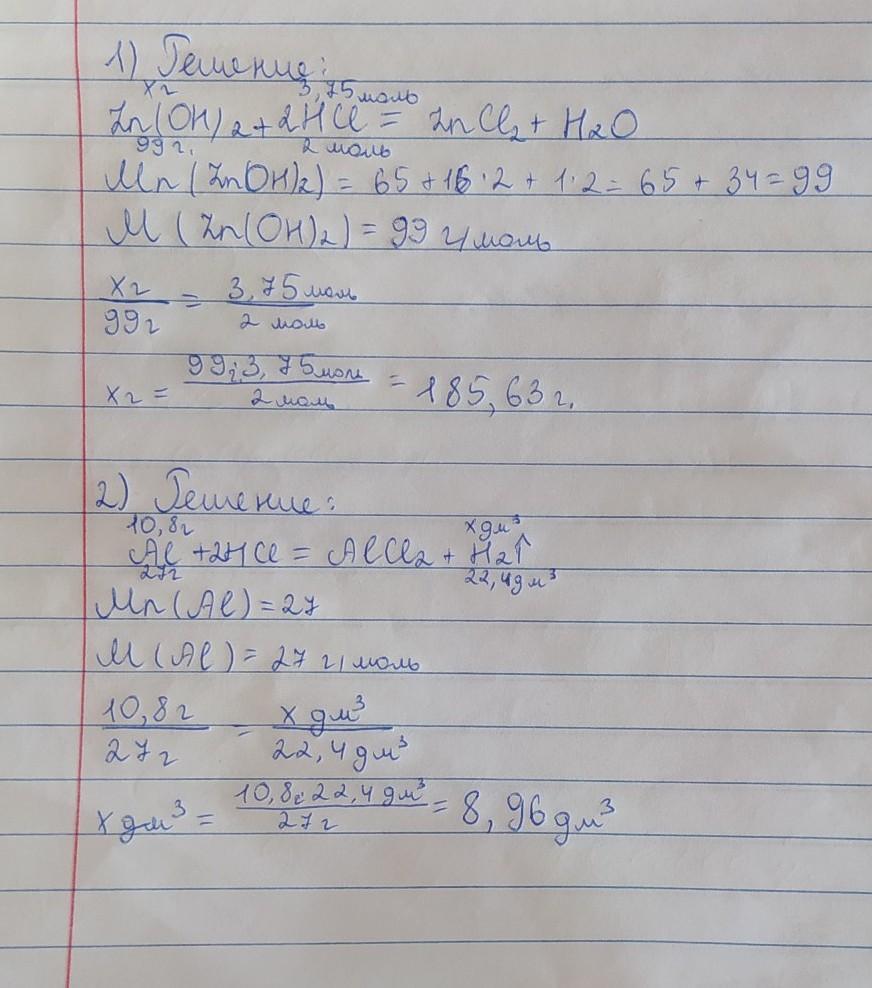 1) Решение:
xг 3,75моль
Zn(OH)2+2HCl = ZnCl2+ H2O
99г. 2 моль
Mr (ZnOH)2) = 65 +16·2 + 1·2= 65 + 34=99
M (Zn(OH)2) = 99 г/моль
xг/99г = 3,75моль/2 моль
xг = 99г·3,75моль/2моль = 185,63г.
2) Решение:
10,8г xдм³
Al +2HCl = AlCl2+ H2↑
27г 22,4дм³
Mr(Al)=27
M(Al) = 27 г/моль
10,8г/27г = x дм³/22,4дм³
x дм³ = 10,8г·22,4дм³/27г = 8,96дм³